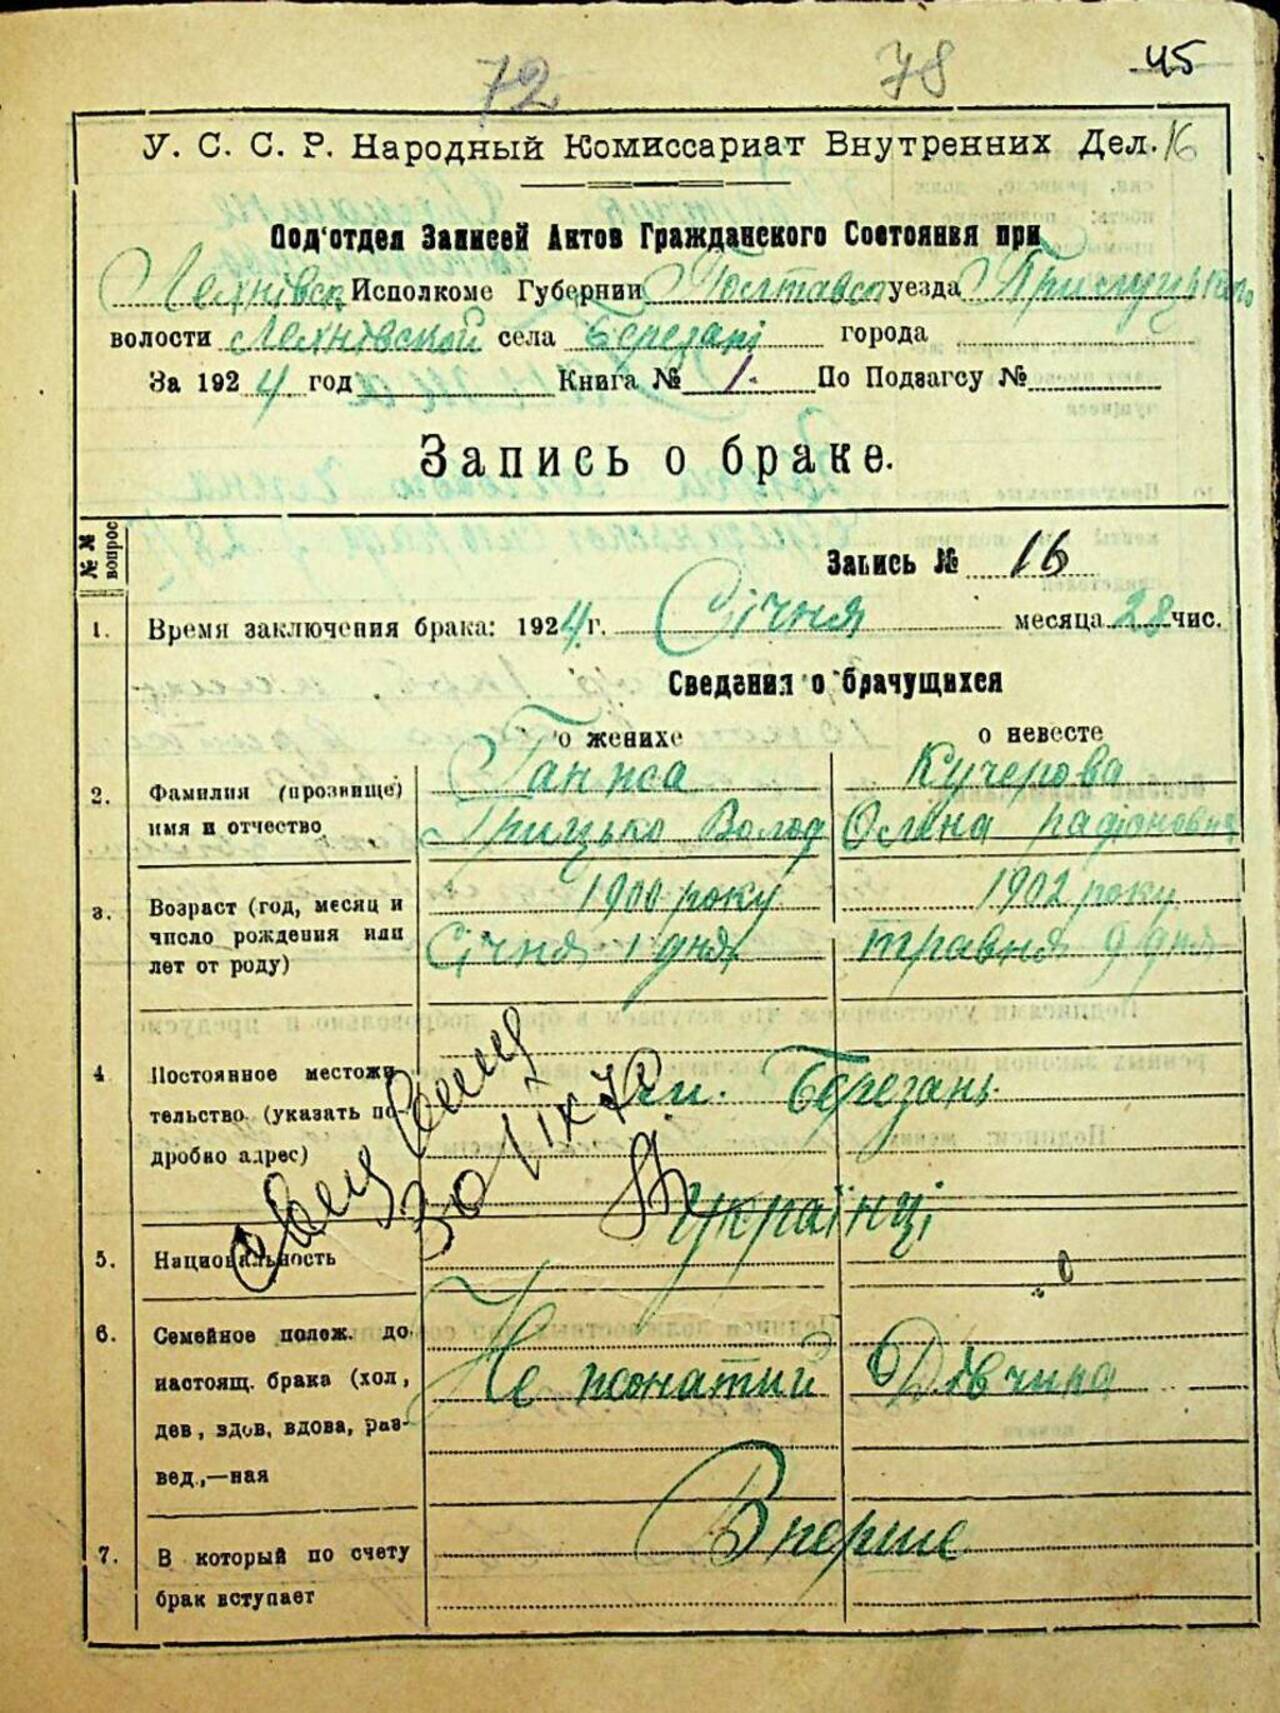 72 78 45
У. С. С. Р. Народный Комиссариат Внутренних Дел. 16
Под'отдел Записей Актов Гражданского Состояния при
Лехнівск Исполкоме Губернии Полтавск уезда Прилуцького
волости Лехнівской села Березані города
За 1924 год Книга № 1. По Подзагсу №
Запись о браке.
№ № вопрос
Запись № 16
1. Время заключения брака: 1924 г. Січня месяца 28 чис.
Сведения о брачущихся
о женихе о невесте
2. Фамилия (прозвище) Ганжа Кучерова
имя и отчество Грицько Волод Олена Радіоновна
3. Возраст (год, месяц и 1900 року 1902 року
число рождения или Січня 1 дня травня 9 дня
лет от роду)
4 Постоянное местожи-
тельство (указать по- Березань
дробно адрес)
30/IX 7
5. Национальность Українці
6. Семейное полож. до
настоящ. брака (хол, Не жонатий Дівчина
дев, вдов, вдова, раз-
вед.,—ная
7. В который по счету Вперше
брак вступает